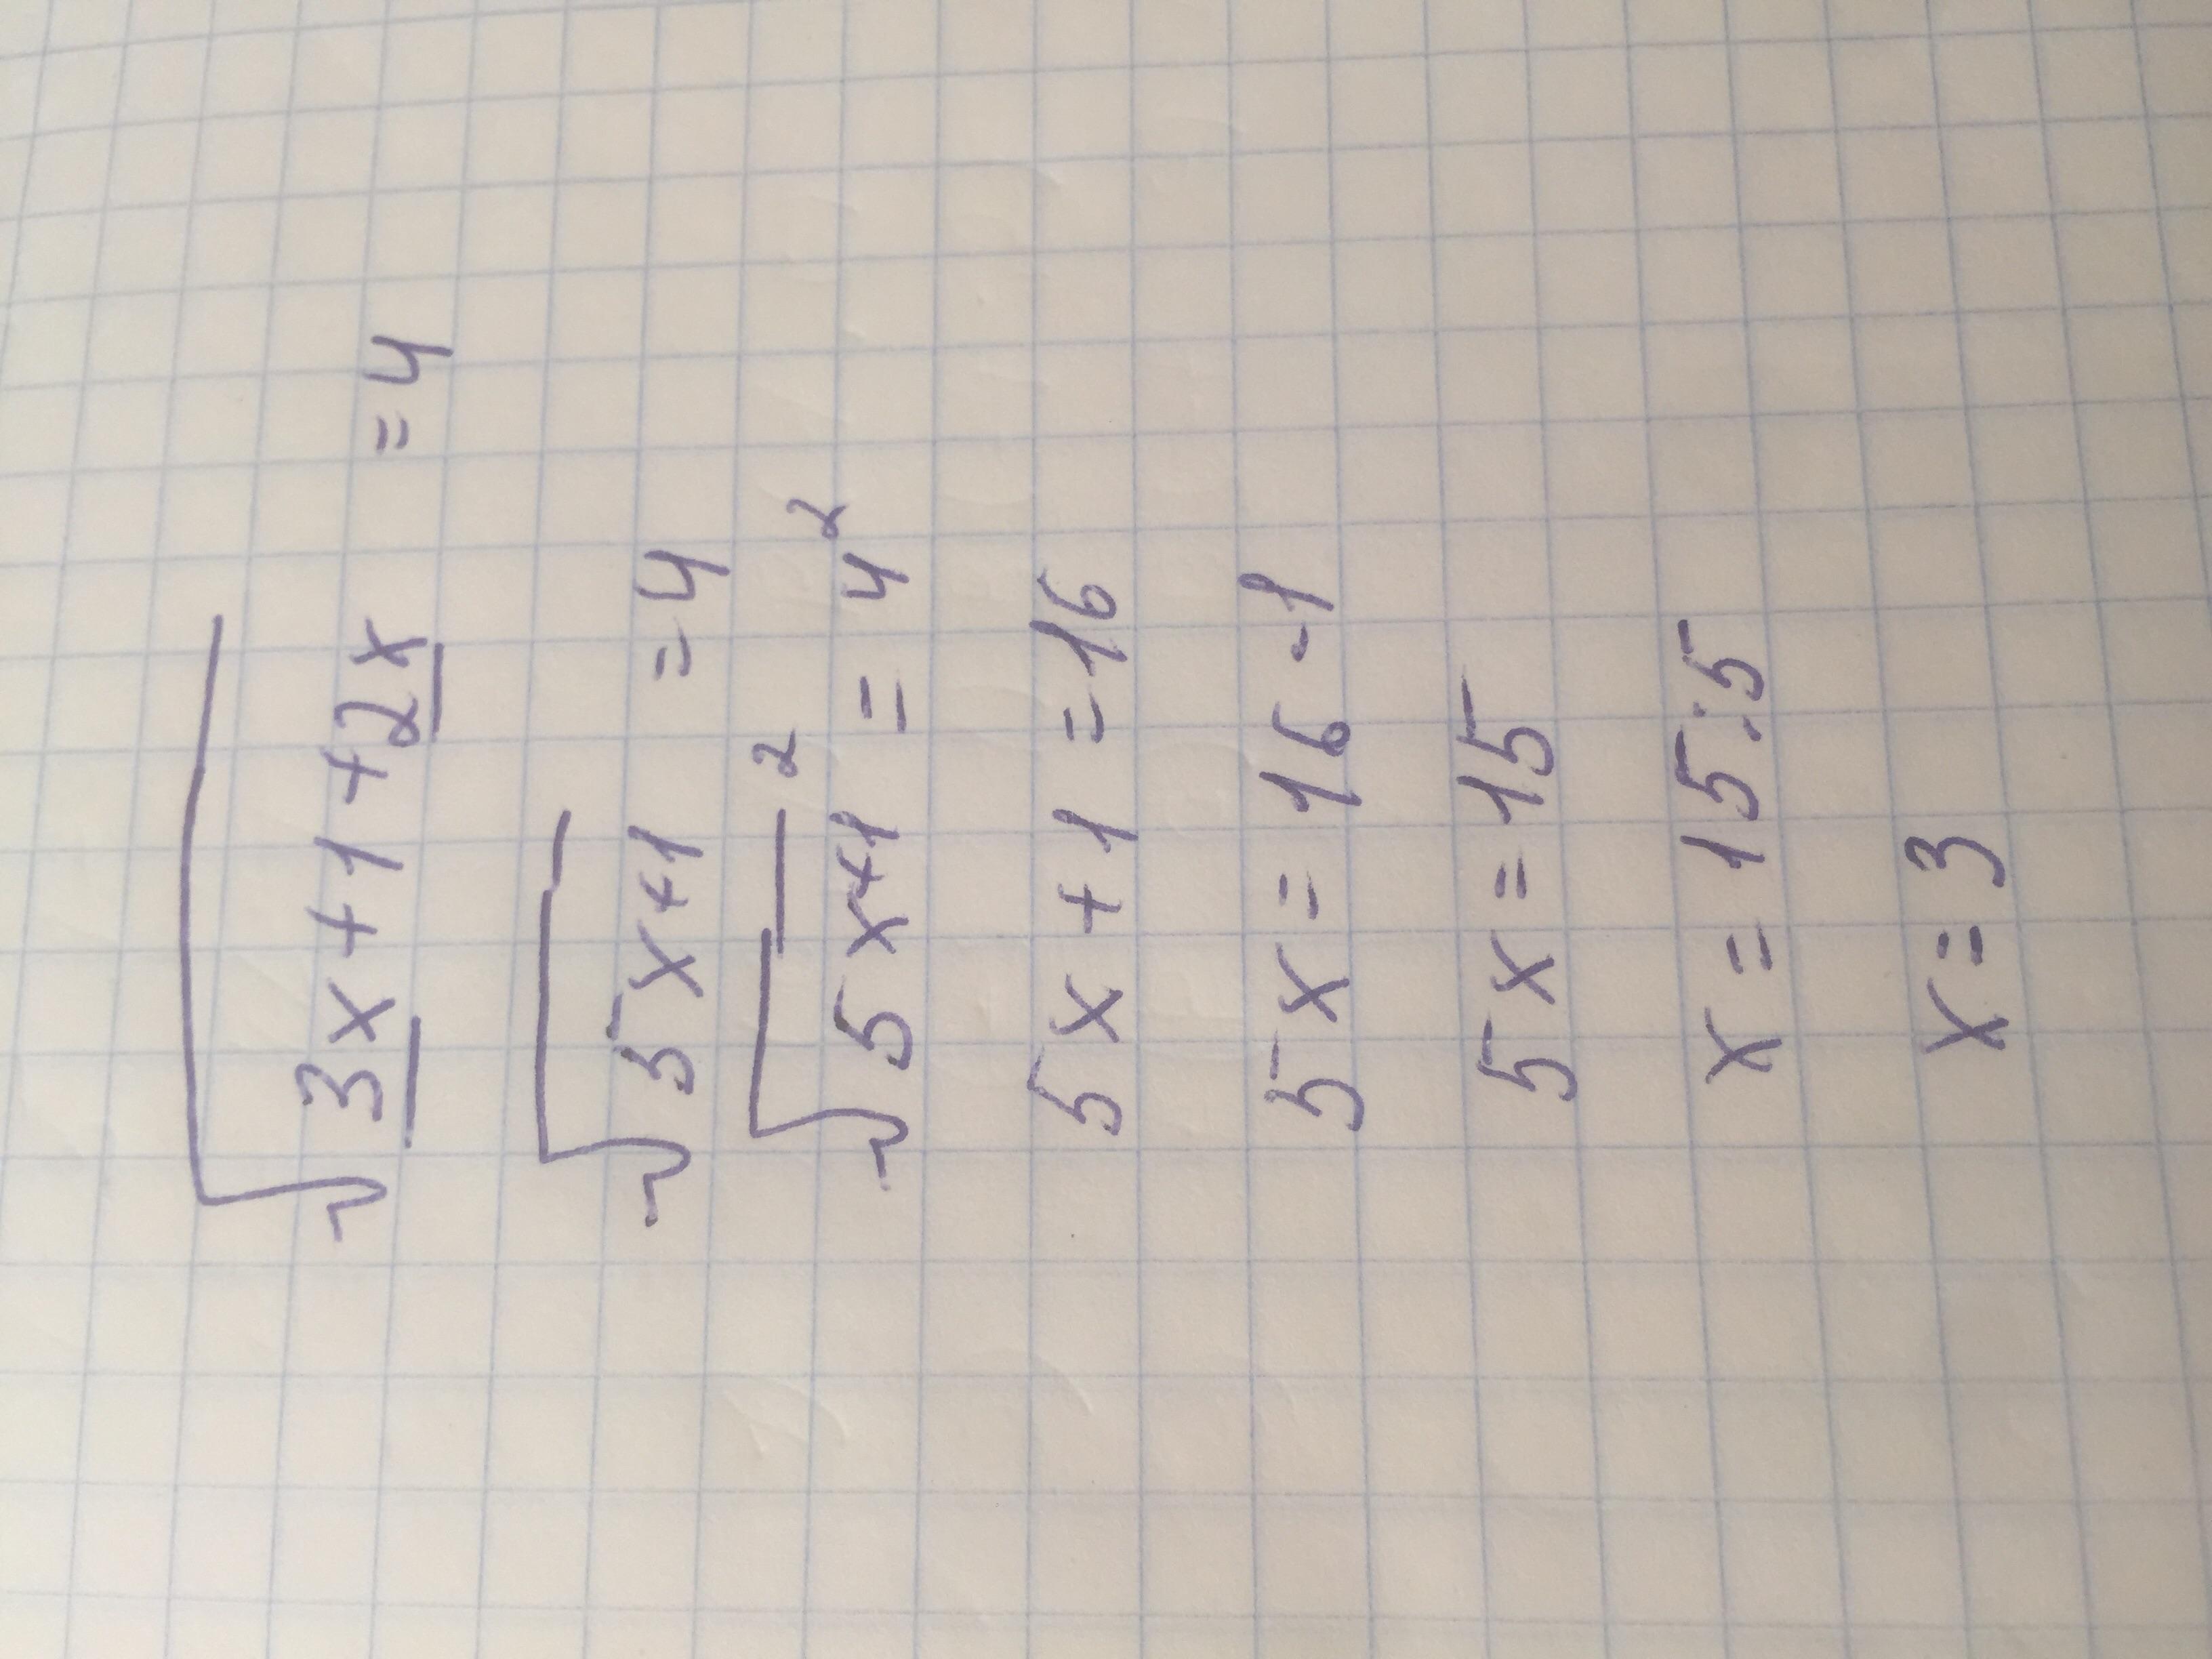 √3x+1+2x = 4
√5x+1 = 4
√5x+1² = 4²
5x+1 = 16
5x = 16-1
5x = 15
x = 15:5
x = 3